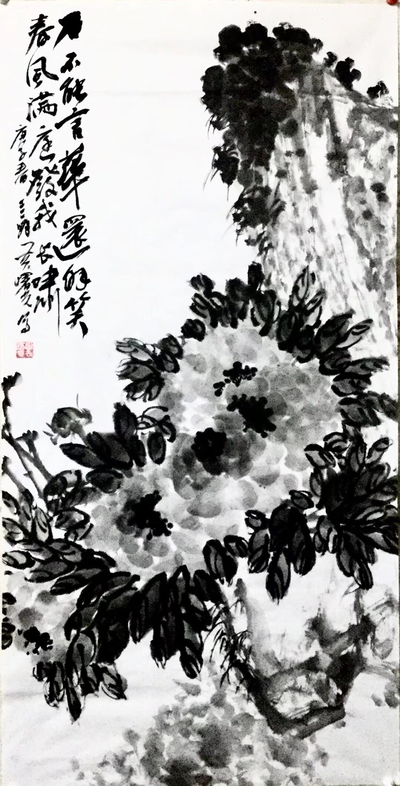 石不能言華還解笑
春風滿庭發我長嘯
庚子春三月黃曙光寫